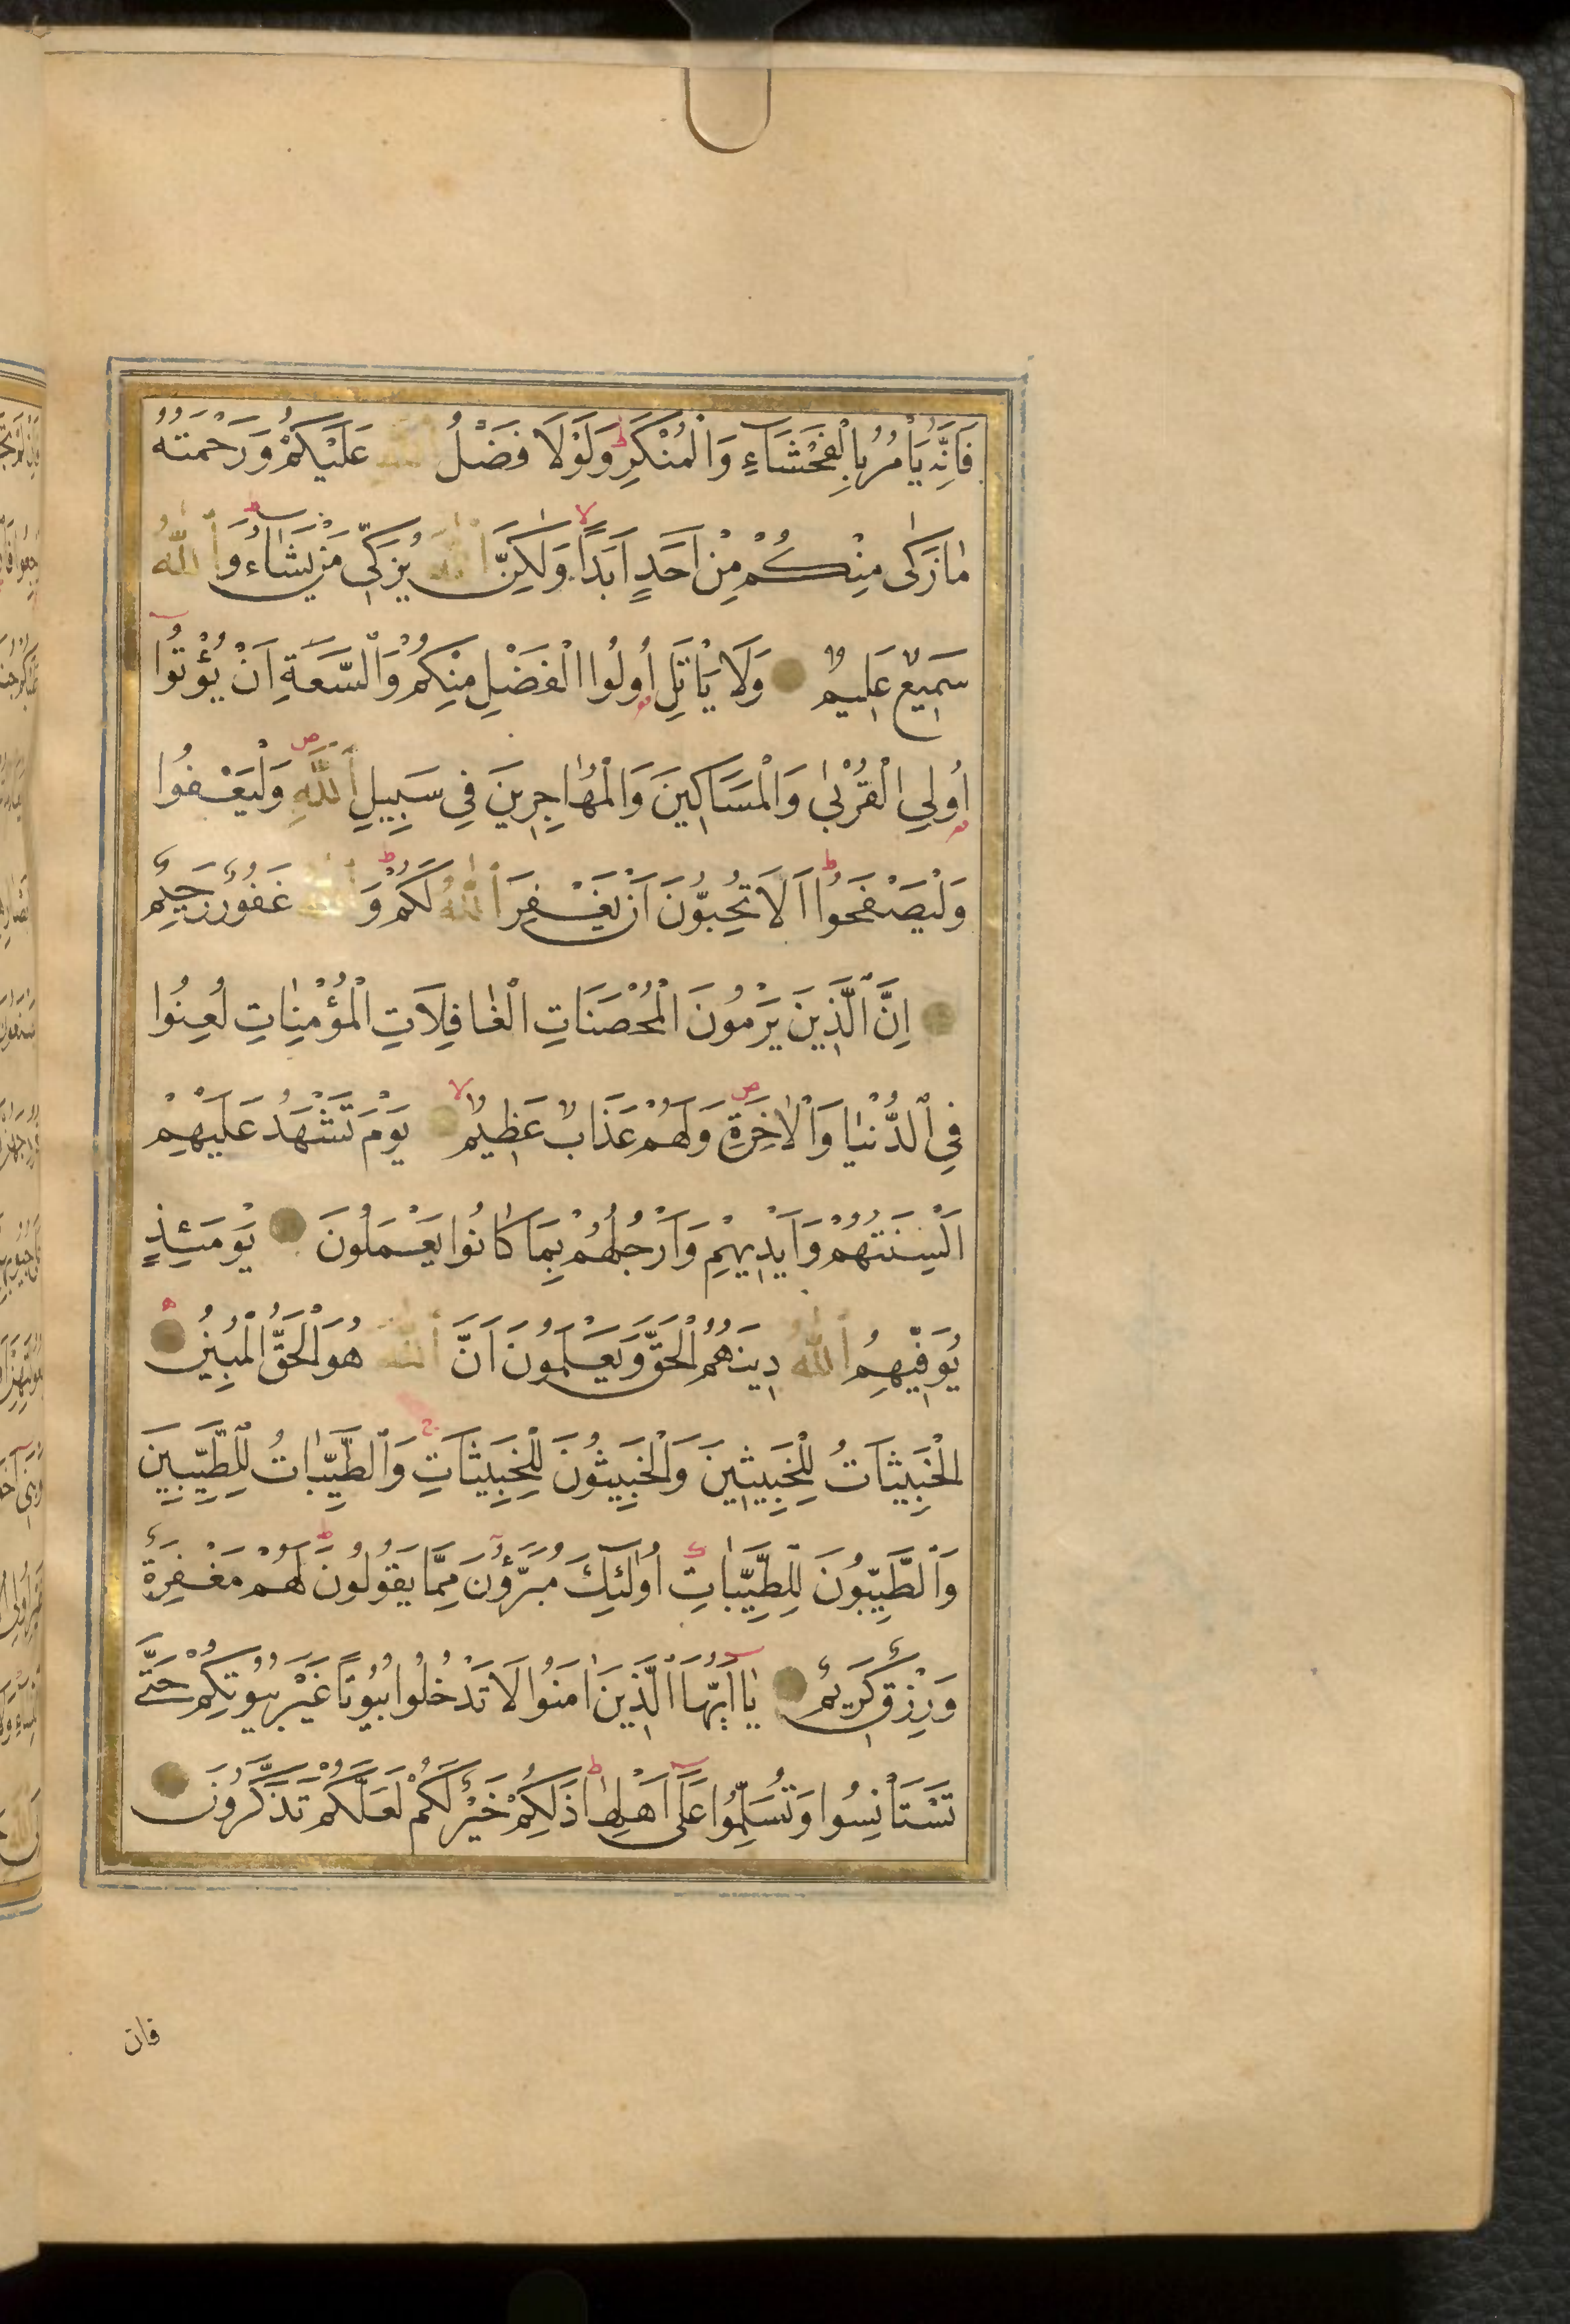 فَاِنَّهُ يَأْمُرُ بِالْفَحْشَاءِ وَالْمُنْكَرِ ط وَلَوْلَا فَضْلُ اللهِ عَلَيْكُمْ وَرَحْمَتُهُ
مَا زَكٰى مِنْكُمْ مِنْ اَحَدٍ اَبَدًا لا وَلٰكِنَّ اللهَ يُزَكِّي مَنْ يَشَاءُ ط وَاللهُ
سَمِيعٌ عَلِيمٌ وَلَا يَأْتَلِ اُولُوا الْفَضْلِ مِنْكُمْ وَالسَّعَةِ اَنْ يُؤْتُوا
اُولِي الْقُرْبٰى وَالْمَسَاكِينَ وَالْمُهَاجِرِينَ فِي سَبِيلِ اللهِ ص وَلْيَعْفُوا
وَلْيَصْفَحُوا ط اَلَا تُحِبُّونَ اَنْ يَغْفِرَ اللهُ لَكُمْ ط وَاللهُ غَفُورٌ رَحِيمٌ
اِنَّ الَّذِينَ يَرْمُونَ الْمُحْصَنَاتِ الْغَافِلَاتِ الْمُؤْمِنَاتِ لُعِنُوا
فِي الدُّنْيَا وَالْاٰخِرَةِ ص وَلَهُمْ عَذَابٌ عَظِيمٌ لا يَوْمَ تَشْهَدُ عَلَيْهِمْ
اَلْسِنَتُهُمْ وَاَيْدِيهِمْ وَاَرْجُلُهُمْ بِمَا كَانُوا يَعْمَلُونَ يَوْمَئِذٍ
يُوَفِّيهِمُ اللهُ دِينَهُمُ الْحَقَّ وَيَعْلَمُونَ اَنَّ اللهَ هُوَ الْحَقُّ الْمُبِينُ
الْخَبِيثَاتُ لِلْخَبِيثِينَ وَالْخَبِيثُونَ لِلْخَبِيثَاتِ ج وَالطَّيِّبَاتُ لِلطَّيِّبِينَ
وَالطَّيِّبُونَ لِلطَّيِّبَاتِ اُولٰئِكَ مُبَرَّؤُنَ مِمَّا يَقُولُونَ ط لَهُمْ مَغْفِرَةٌ
وَرِزْقٌ كَرِيمٌ يَا اَيُّهَا الَّذِينَ اٰمَنُوا لَا تَدْخُلُوا بُيُوتًا غَيْرَ بُيُوتِكُمْ حَتَّى
تَسْتَأْنِسُوا وَتُسَلِّمُوا عَلٰى اَهْلِهَا ط ذٰلِكُمْ خَيْرٌ لَكُمْ لَعَلَّكُمْ تَذَكَّرُونَ
فان